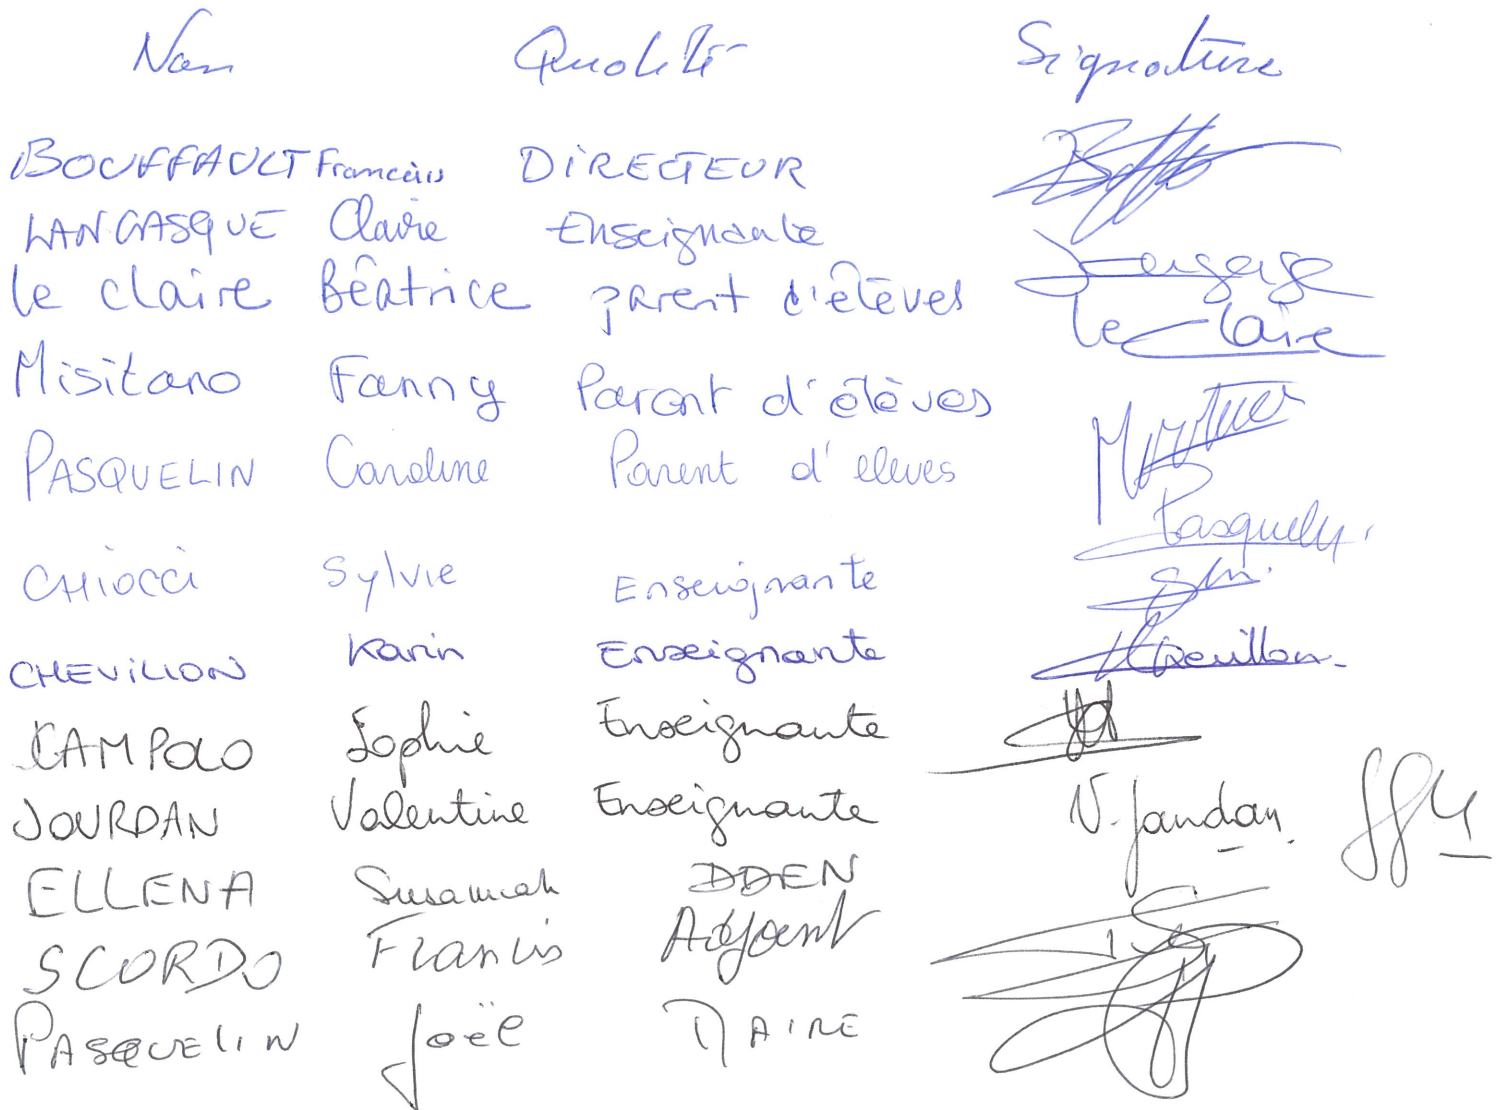 Nom Qualité Signature
BOUFFAULT Francois DIRECTEUR
LANGASQUE Claire Enseignante
le claire Béatrice parent d'élèves le Claire
Misitano Fanny Parent d'élèves
PASQUELIN Caroline Parent d'eleves
CHIOCCI Sylvie Enseignante
CHEVILLON Karin Enseignante
CAMPOLO Sophie Enseignante
JOURDAN Valentine Enseignante V. Jourdan
ELLENA Susannah DDEN
SCORDO Francis Adjoint
PASQUELIN Joël MAIRE